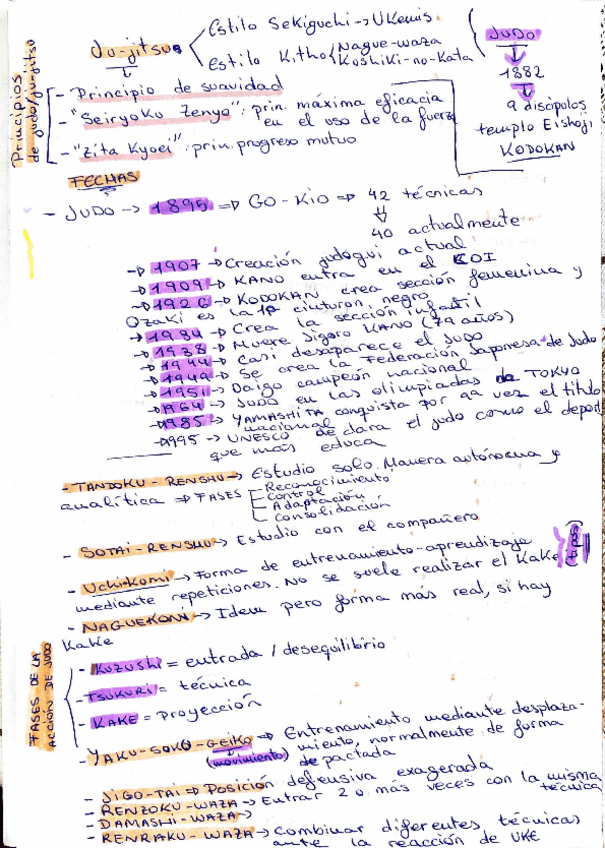 Principios de judo/ju-jitsu
Ju-jitsu
Estilo Sekiguchi → UKemis
Estilo Kitho
Nague-waza
Koshiki-no-Kata
JUDO
1882
9 discípulos
templo Eishoji
KODOKAN
- Principio de suavidad
- "Seiryoku Zenyo": prin. máxima eficacia
en el uso de la fuerza
- "Zita Kyoei": prin. progreso mutuo
FECHAS
- JUDO → 1895 ⇒ GO-KIO ⇒ 42 técnicas
40 actualmente
→ 1907 → Creación judogui actual
→ 1909 → KANO entra en el COI
→ 1926 → KODOKAN crea sección femenina y
Ozaki es la 1ª cinturon negro
→ Crea la sección infantil
→ 1938 → Muere Jigoro KANO (79 años)
→ 1944 → Casi desaparece el JUDO
→ 1949 → Se crea la Federación Japonesa de Judo
→ 1951 → Daigo campeón nacional
→ 1964 → JUDO en las olimpiadas de TOKYO
→ 1985 → YAMASHITA conquista por 9ª vez el titulo
nacional
→ 1995 → UNESCO declara el judo como el deporte
que más educa
- TANDOKU-RENSHU → Estudio solo. Manera autónoma y
analítica ⇒ FASES
Reconocimiento
Control
Adaptación
Consolidación
- SOTAI-RENSHU → Estudio con el compañero
- Uchikomi → Forma de entrenamiento-aprendizaje
mediante repeticiones. No se suele realizar el Kake
- NAGUEKOMI → Idem pero forma más real, si hay
Kake
FASES DE LA ACCIÓN DE JUDO
- KUZUSHI = entrada / desequilibrio
- TSUKURI = técnica
- KAKE = Proyección
- YAKU-SOKO-GEIKO ⇒ Entrenamiento mediante desplaza-
(movimiento) miento, normalmente de forma
pactada
- JIGO-TAI ⇒ Posición defensiva exagerada
- RENZOKU-WAZA → Entrar 2 o más veces con la misma
técnica
- DAMASHI-WAZA →
- RENRAKU-WAZA → Combinar diferentes técnicas
ante la reacción de UKE